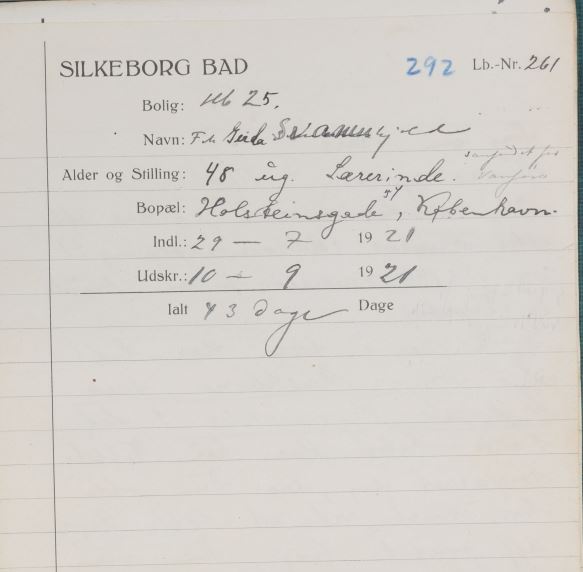 SILKEBORG BAD 292 Lb.-Nr. 261
Bolig: 25.
Navn: Frk Gerda
Alder og Stilling: 48 ug. Lærerinde.
Bopæl: Holsteinsgade 54, København.
Indl.: 29 – 7 1921
Udskr.: 10 – 9 1921
Ialt 43 dage Dage